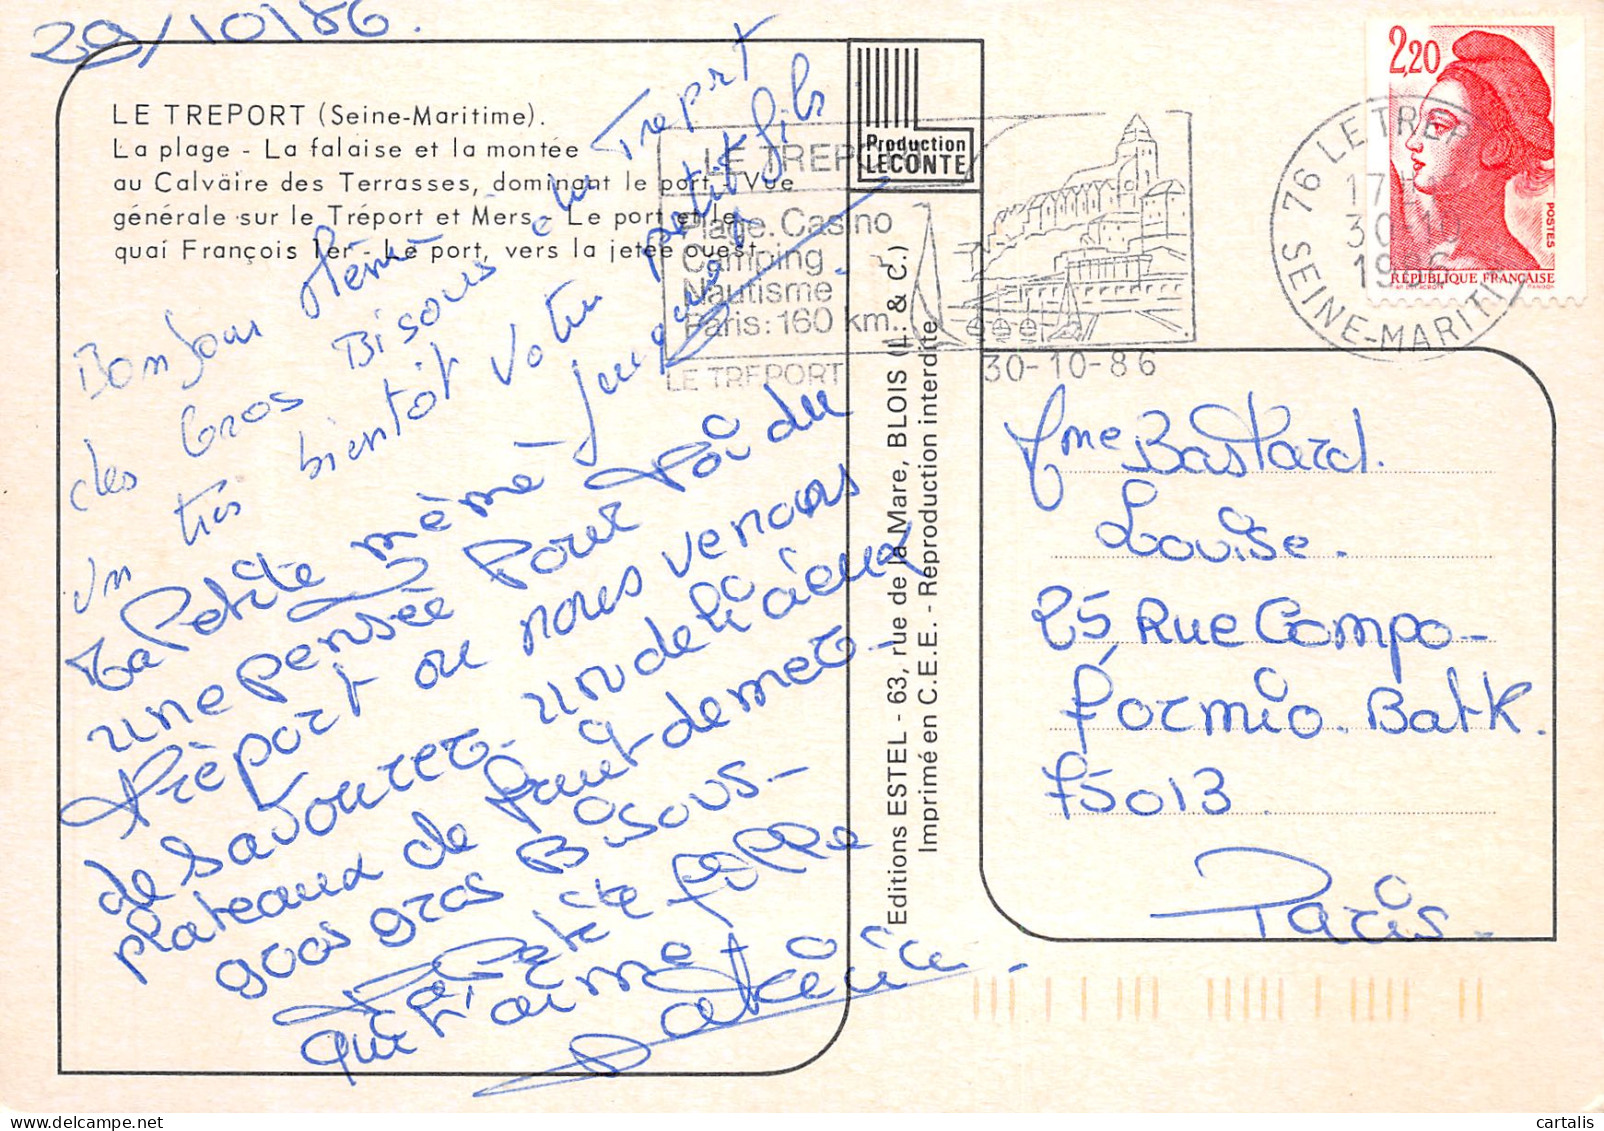 29/10/86.
LE TREPORT (Seine-Maritime).
La plage - La falaise et la montée
au Calvaire des Terrasses, dominant le port - Vue
générale sur le Tréport et Mers - Le port et le
quai François 1er - Le port, vers la jetée ouest.
Production
LECONTE
LE TREPORT
Plage. Casino
Camping
Nautisme
Paris: 160 km.
LE TREPORT
30-10-86
76 LE TREPORT
17H
30-10
1986
SEINE-MARITIME
2,20
POSTES
RÉPUBLIQUE FRANÇAISE
Bonjour Mémé du Treport
des Gros Bisous
un très bientôt Votre petit fils
Ta Petite mémé
une pensée Pour Toi du
Tréport ou nous venons
de savourer un délicieux
plateaux de fruit de mer
gros gros Bisous
Ta Petite fille
qui t'aime
Patricia
Editions ESTEL - 63, rue de la Mare, BLOIS (L. & C.)
Imprimé en C.E.E. - Reproduction interdite
Mme Bastard.
Louise.
25 Rue Campo-
Formio. Bat K.
75013.
Paris.
cartalis